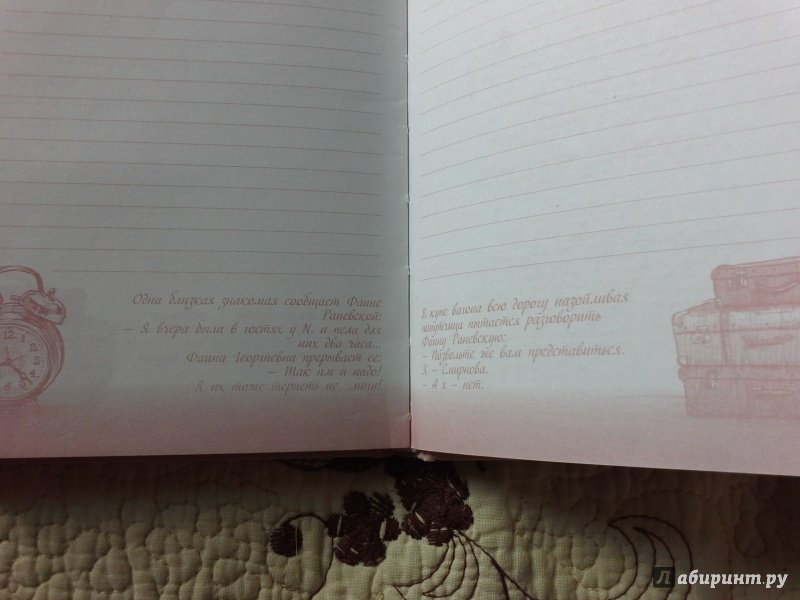 Одна близкая знакомая сообщает Фаине
Раневской:
– Я вчера была в гостях у N. и пела для
них два часа...
Фаина Георгиевна прерывает ее:
– Так им и надо!
Я их тоже терпеть не могу!
В купе вагона всю дорогу назойливая
попутчица пытается разговорить
Фаину Раневскую:
– Позвольте же вам представиться.
Я – Смирнова.
– А я – нет.
Лабиринт.ру